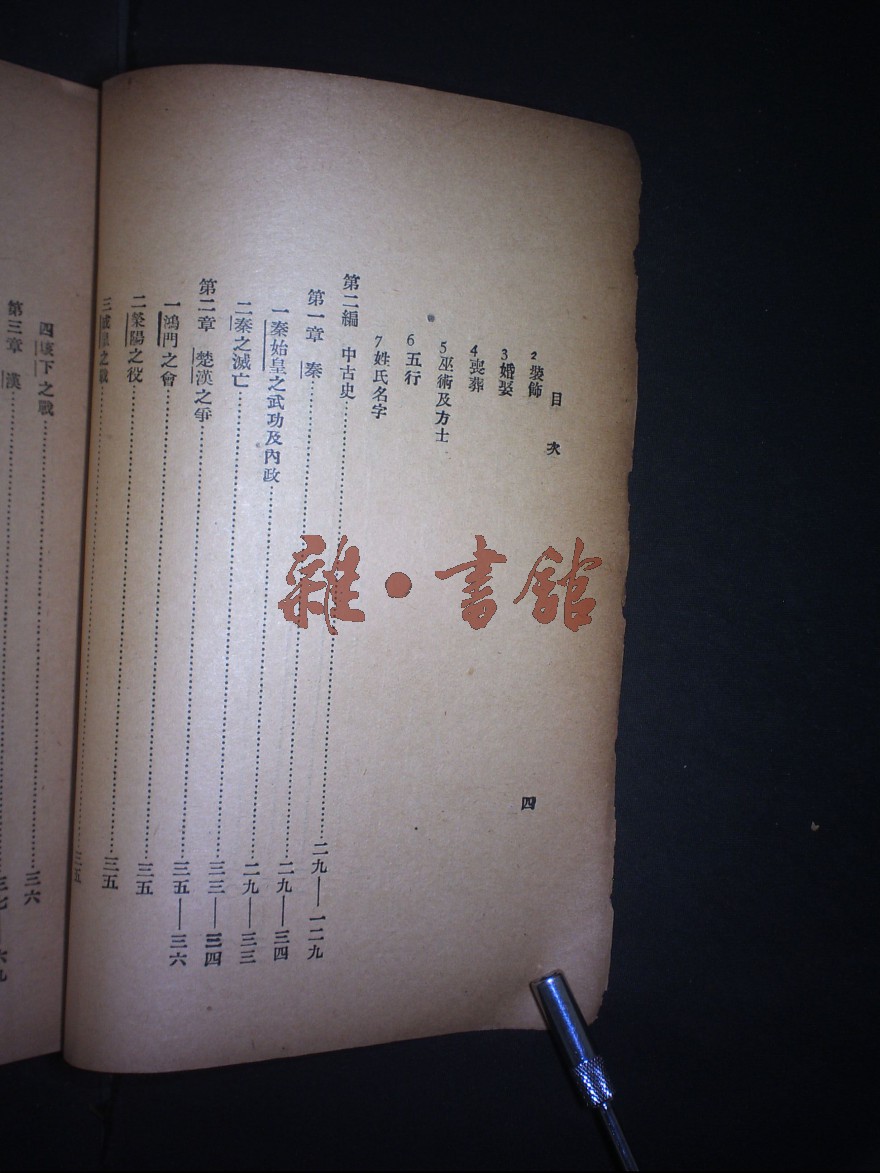 目次 四
2裝飾
3婚娶
4喪葬
5巫術及方士
6五行
7姓氏名字
第二編 中古史……二九—一二九
第一章 秦……二九—三四
一秦始皇之武功及內政……二九—三三
二秦之滅亡……三三—三四
第二章 楚漢之爭……三五—三六
一鴻門之會……三五
二滎陽之役……三五
三成皋之戰……三五
四垓下之戰……三六
第三章 漢……三七—六九
雜·書館